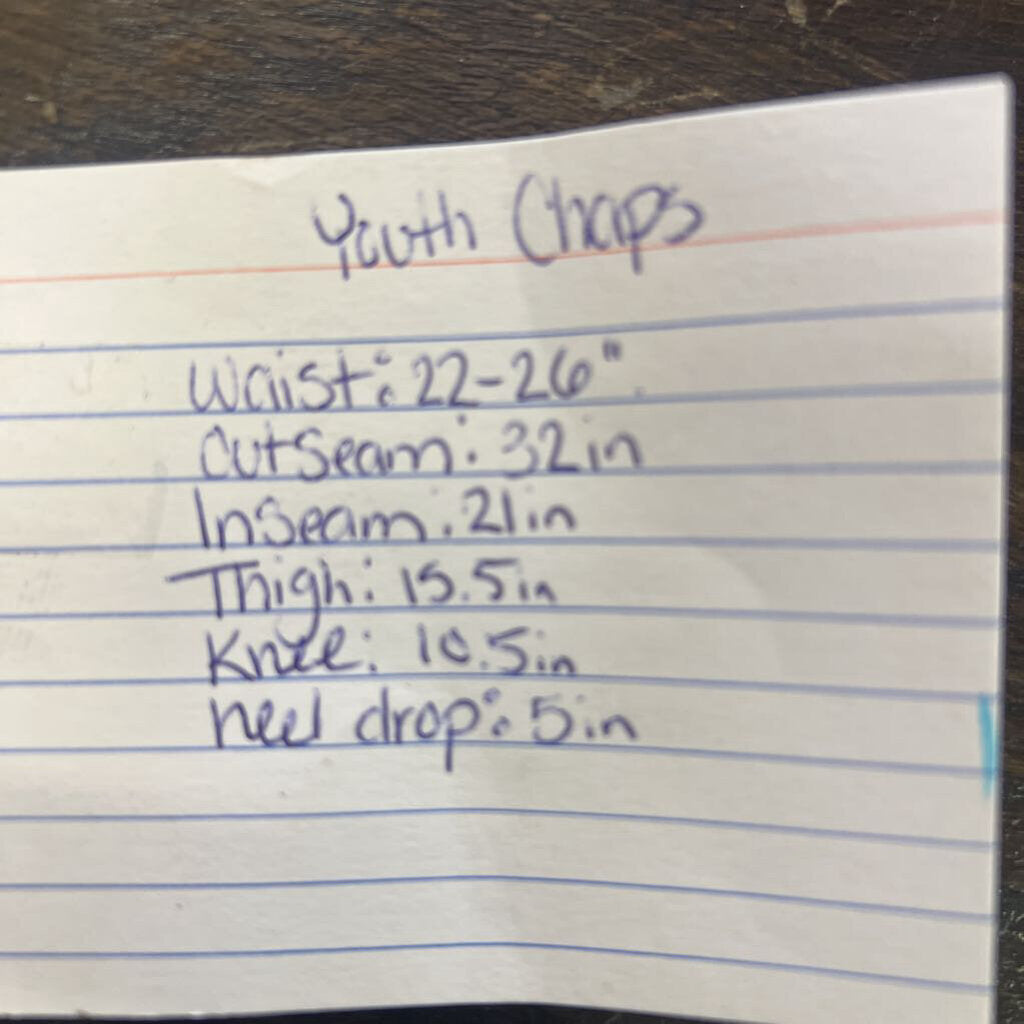 Youth Chaps
Waist: 22-26"
Outseam: 32in
Inseam: 21in
Thigh: 15.5in
Knee: 10.5in
heel drop: 5in